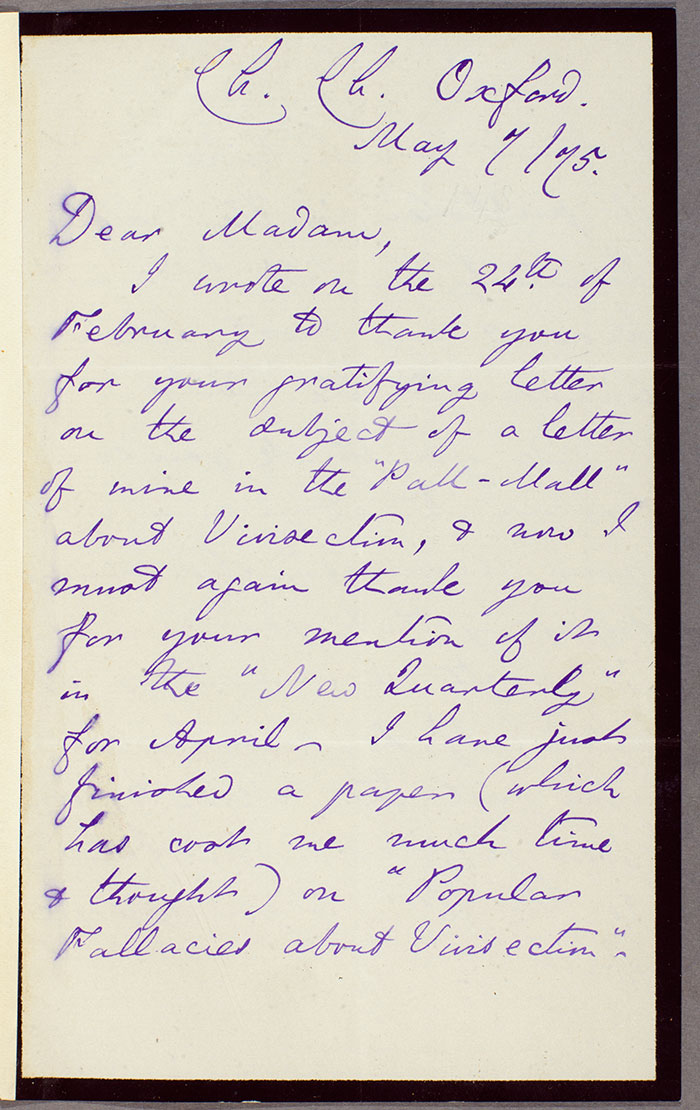 Ch. Ch. Oxford.
May 7/75.
Dear Madam,
I wrote on the 24th. of
February to thank you
for your gratifying letter
on the subject of a letter
of mine in the "Pall-Mall"
about Vivisection, & now I
must again thank you
for your mention of it
in the "New Quarterly"
for April - I have just
finished a paper (which
has cost me much time
& thought) on "Popular
Fallacies about Vivisection"-